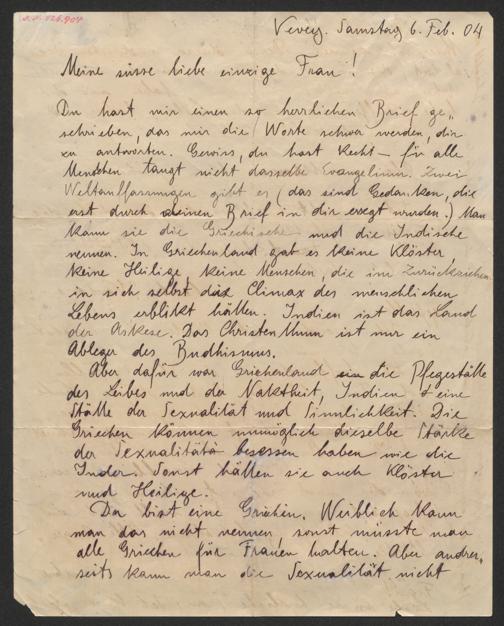 Vevey. Samstag 6. Feb. 04
Meine süsse liebe einzige Frau!
Du hast mir einen so herrlichen Brief ge„
schrieben, das mir die Worte schwer werden, dir
zu antworten. Gewiss, du hast Recht – für alle
Menschen taugt nicht dasselbe Evangelium. Zwei
Weltauffassungen gibt es (das sind Gedanken, die
erst durch deinen Brief in dir erregt wurden.) Man
kann sie die Griechische und die Indische
nennen. In Griechenland gab es keine Klöster,
keine Heilige, keine Menschen, die im Zurückziehen
in sich selbst das Climax des menschlichen
Lebens erblikt hätten. Indien ist das Land
der Askese. Das Christenthum ist nur ein
Ableger des Budhismus.
Aber dafür war Griechenland die Pflegestätte
des Leibes und der Naktheit, Indien eine
Stätte der Sexualität und Sinnlichkeit. Die
Griechen können unmöglich dieselbe Stärke
der Sexualität besessen haben wie die
Inder. Sonst hätten sie auch Klöster
und Heilige.
Du bist eine Griechin. Weiblich kann
man das nicht nennen, sonst müsste man
alle Griechen für Frauen halten. Aber andrer„
seits kann man die Sexualität nicht